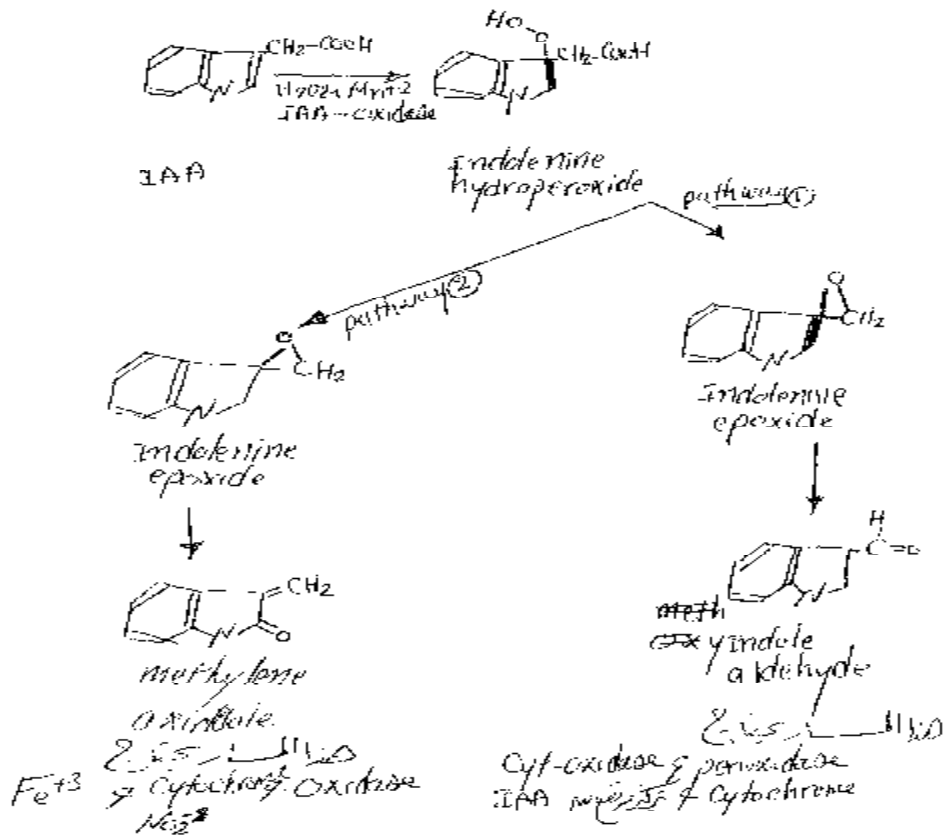 CH₂-COOH
N
H₂O₂, Mn+2
IAA-oxidase
IAA
HO
O
CH₂-COOH
N
Indolenine
hydroperoxide
pathway ①
pathway ②
O
CH₂
N
Indolenine
epoxide
O
CH₂
N
Indolenine
epoxide
=CH₂
N
O
methylene
oxindole
Fe+3
Cytochrome oxidase
H
C=O
N
indole
aldehyde
Cyt-oxidase peroxidase
IAA
Cytochrome